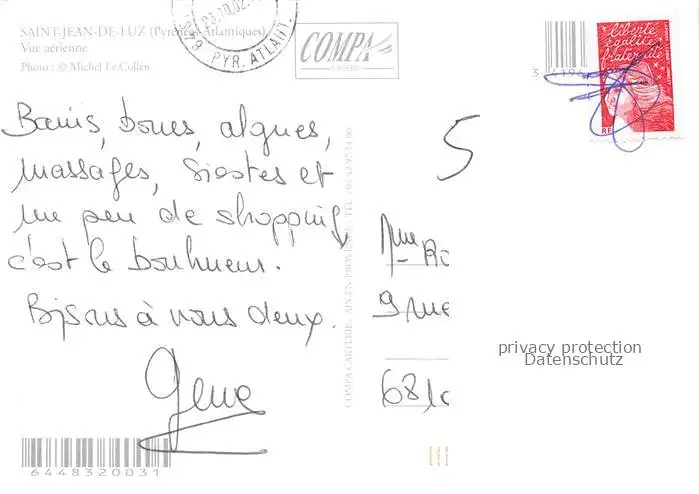 SAINT-JEAN-DE-LUZ (Pyrénées-Atlantiques)
Vue aérienne
Photo : © Michel Le Collen
23.10.02
PYR. ATLANT.
COMPA
liberté
égalité
fraternité
Bains, boues, algues,
massages, siestes et
un peu de shopping,
c'est le bonheur.
Bisous à vous deux.
5
Mme
9 rue
68
COMPA CARTERIE - AIX EN PROVENCE - TEL.
privacy protection
Datenschutz
6448320031